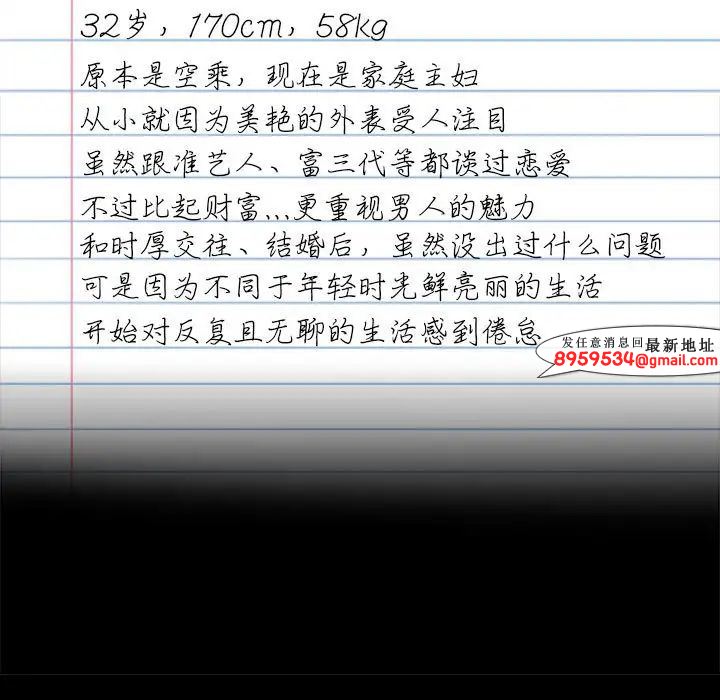 32岁，170cm，58kg
原本是空乘，现在是家庭主妇
从小就因为美艳的外表受人注目
虽然跟准艺人、富三代等都谈过恋爱
不过比起财富,,,更重视男人的魅力
和时厚交往、结婚后，虽然没出过什么问题
可是因为不同于年轻时光鲜亮丽的生活
开始对反复且无聊的生活感到倦怠
发任意消息回最新地址
8959534@gmail.com